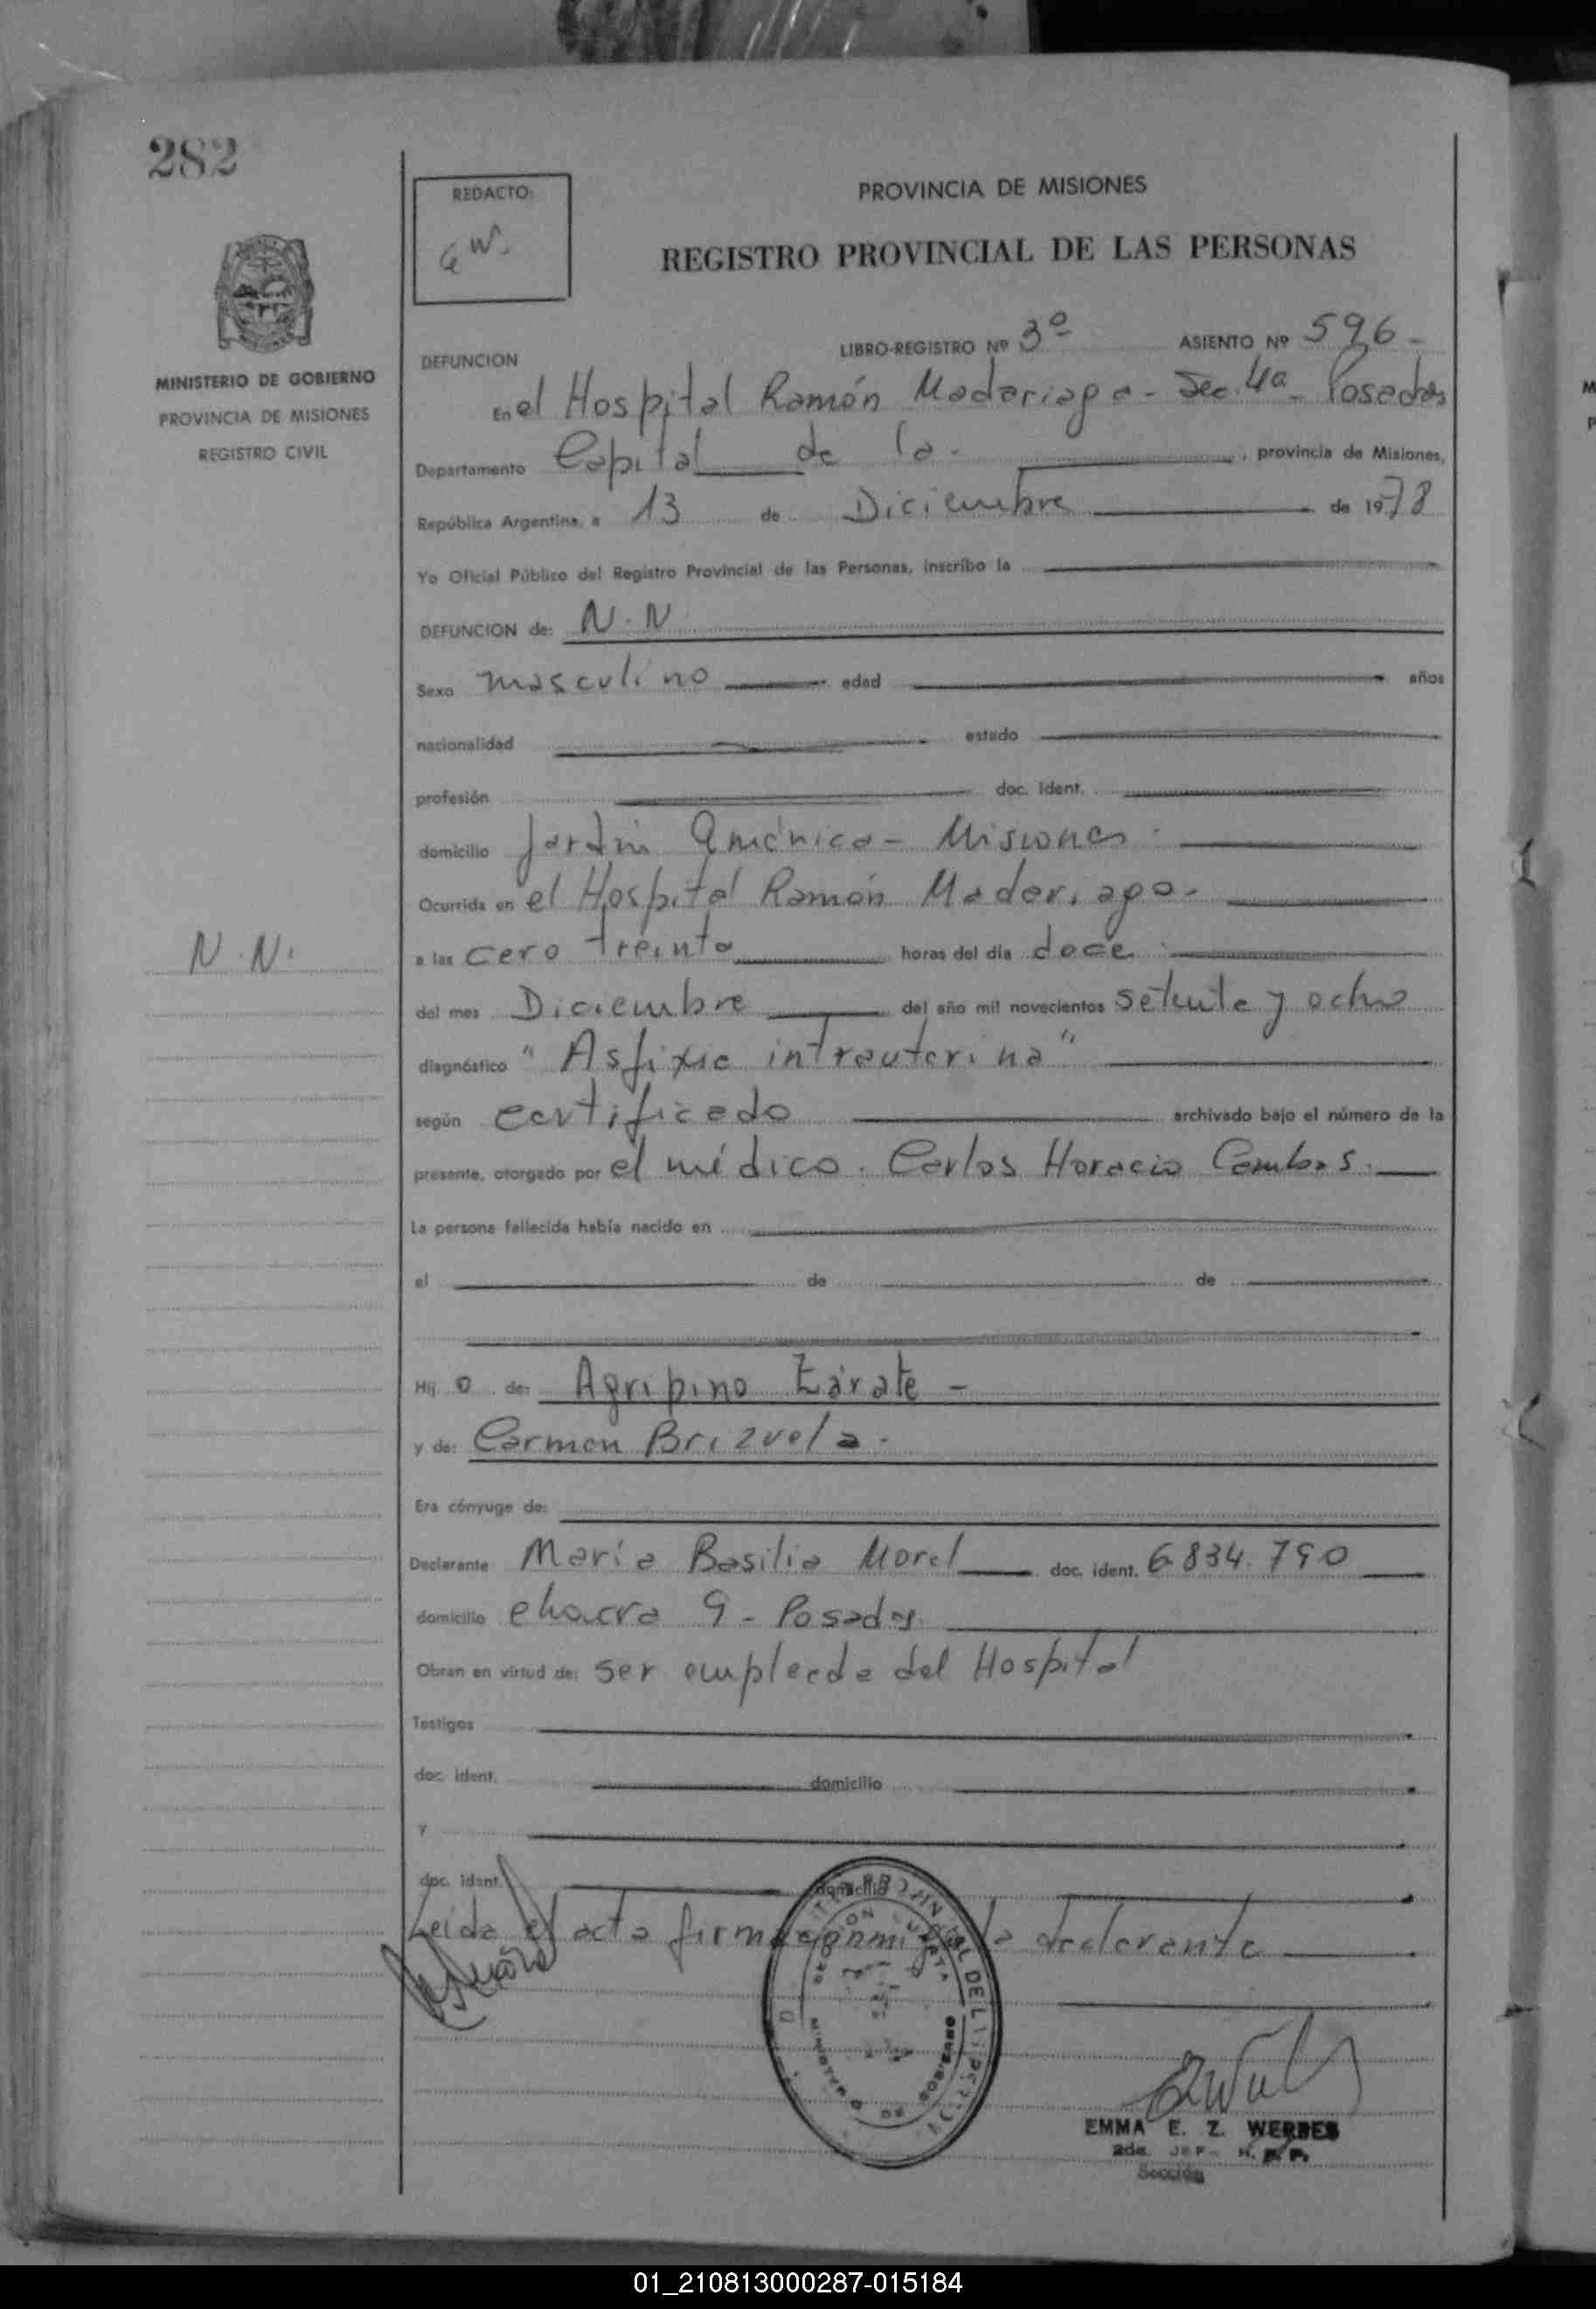 282
REDACTO:
PROVINCIA DE MISIONES
REGISTRO PROVINCIAL DE LAS PERSONAS
MINISTERIO DE GOBIERNO
PROVINCIA DE MISIONES
REGISTRO CIVIL
DEFUNCION LIBRO-REGISTRO Nº 3º ASIENTO Nº 596-
En el Hospital Ramón Madariaga - Sec. 4a - Posadas
Departamento Capital de la - , provincia de Misiones,
República Argentina, a 13 de Diciembre de 1978
Yo Oficial Público del Registro Provincial de las Personas, inscribo la
DEFUNCION de: N.N
Sexo masculino edad años
nacionalidad estado
profesión doc. ident.
domicilio Jardín América - Misiones.
Ocurrida en el Hospital Ramón Madariaga-
N.N.
a las cero treinta horas del día doce
del mes Diciembre del año mil novecientos setenta y ocho
diagnóstico "Asfixia intrauterina"
según certificado archivado bajo el número de la
presente, otorgado por el médico. Carlos Horacio Cambas.
La persona fallecida había nacido en
el de de
Hij o de: Agripino Zárate -
y de: Carmen Brizuela.
Era cónyuge de:
Declarante María Basilia Morel doc. ident. 6.834.790
domicilio chacra 9 - Posadas
Obran en virtud de: ser empleada del Hospital
Testigos
doc. ident. domicilio
y
doc. ident. domicilio
Leida el acta firma conmigo la declarante
EMMA E. Z. WERBES
2da. JEF
Sección
01_210813000287-015184